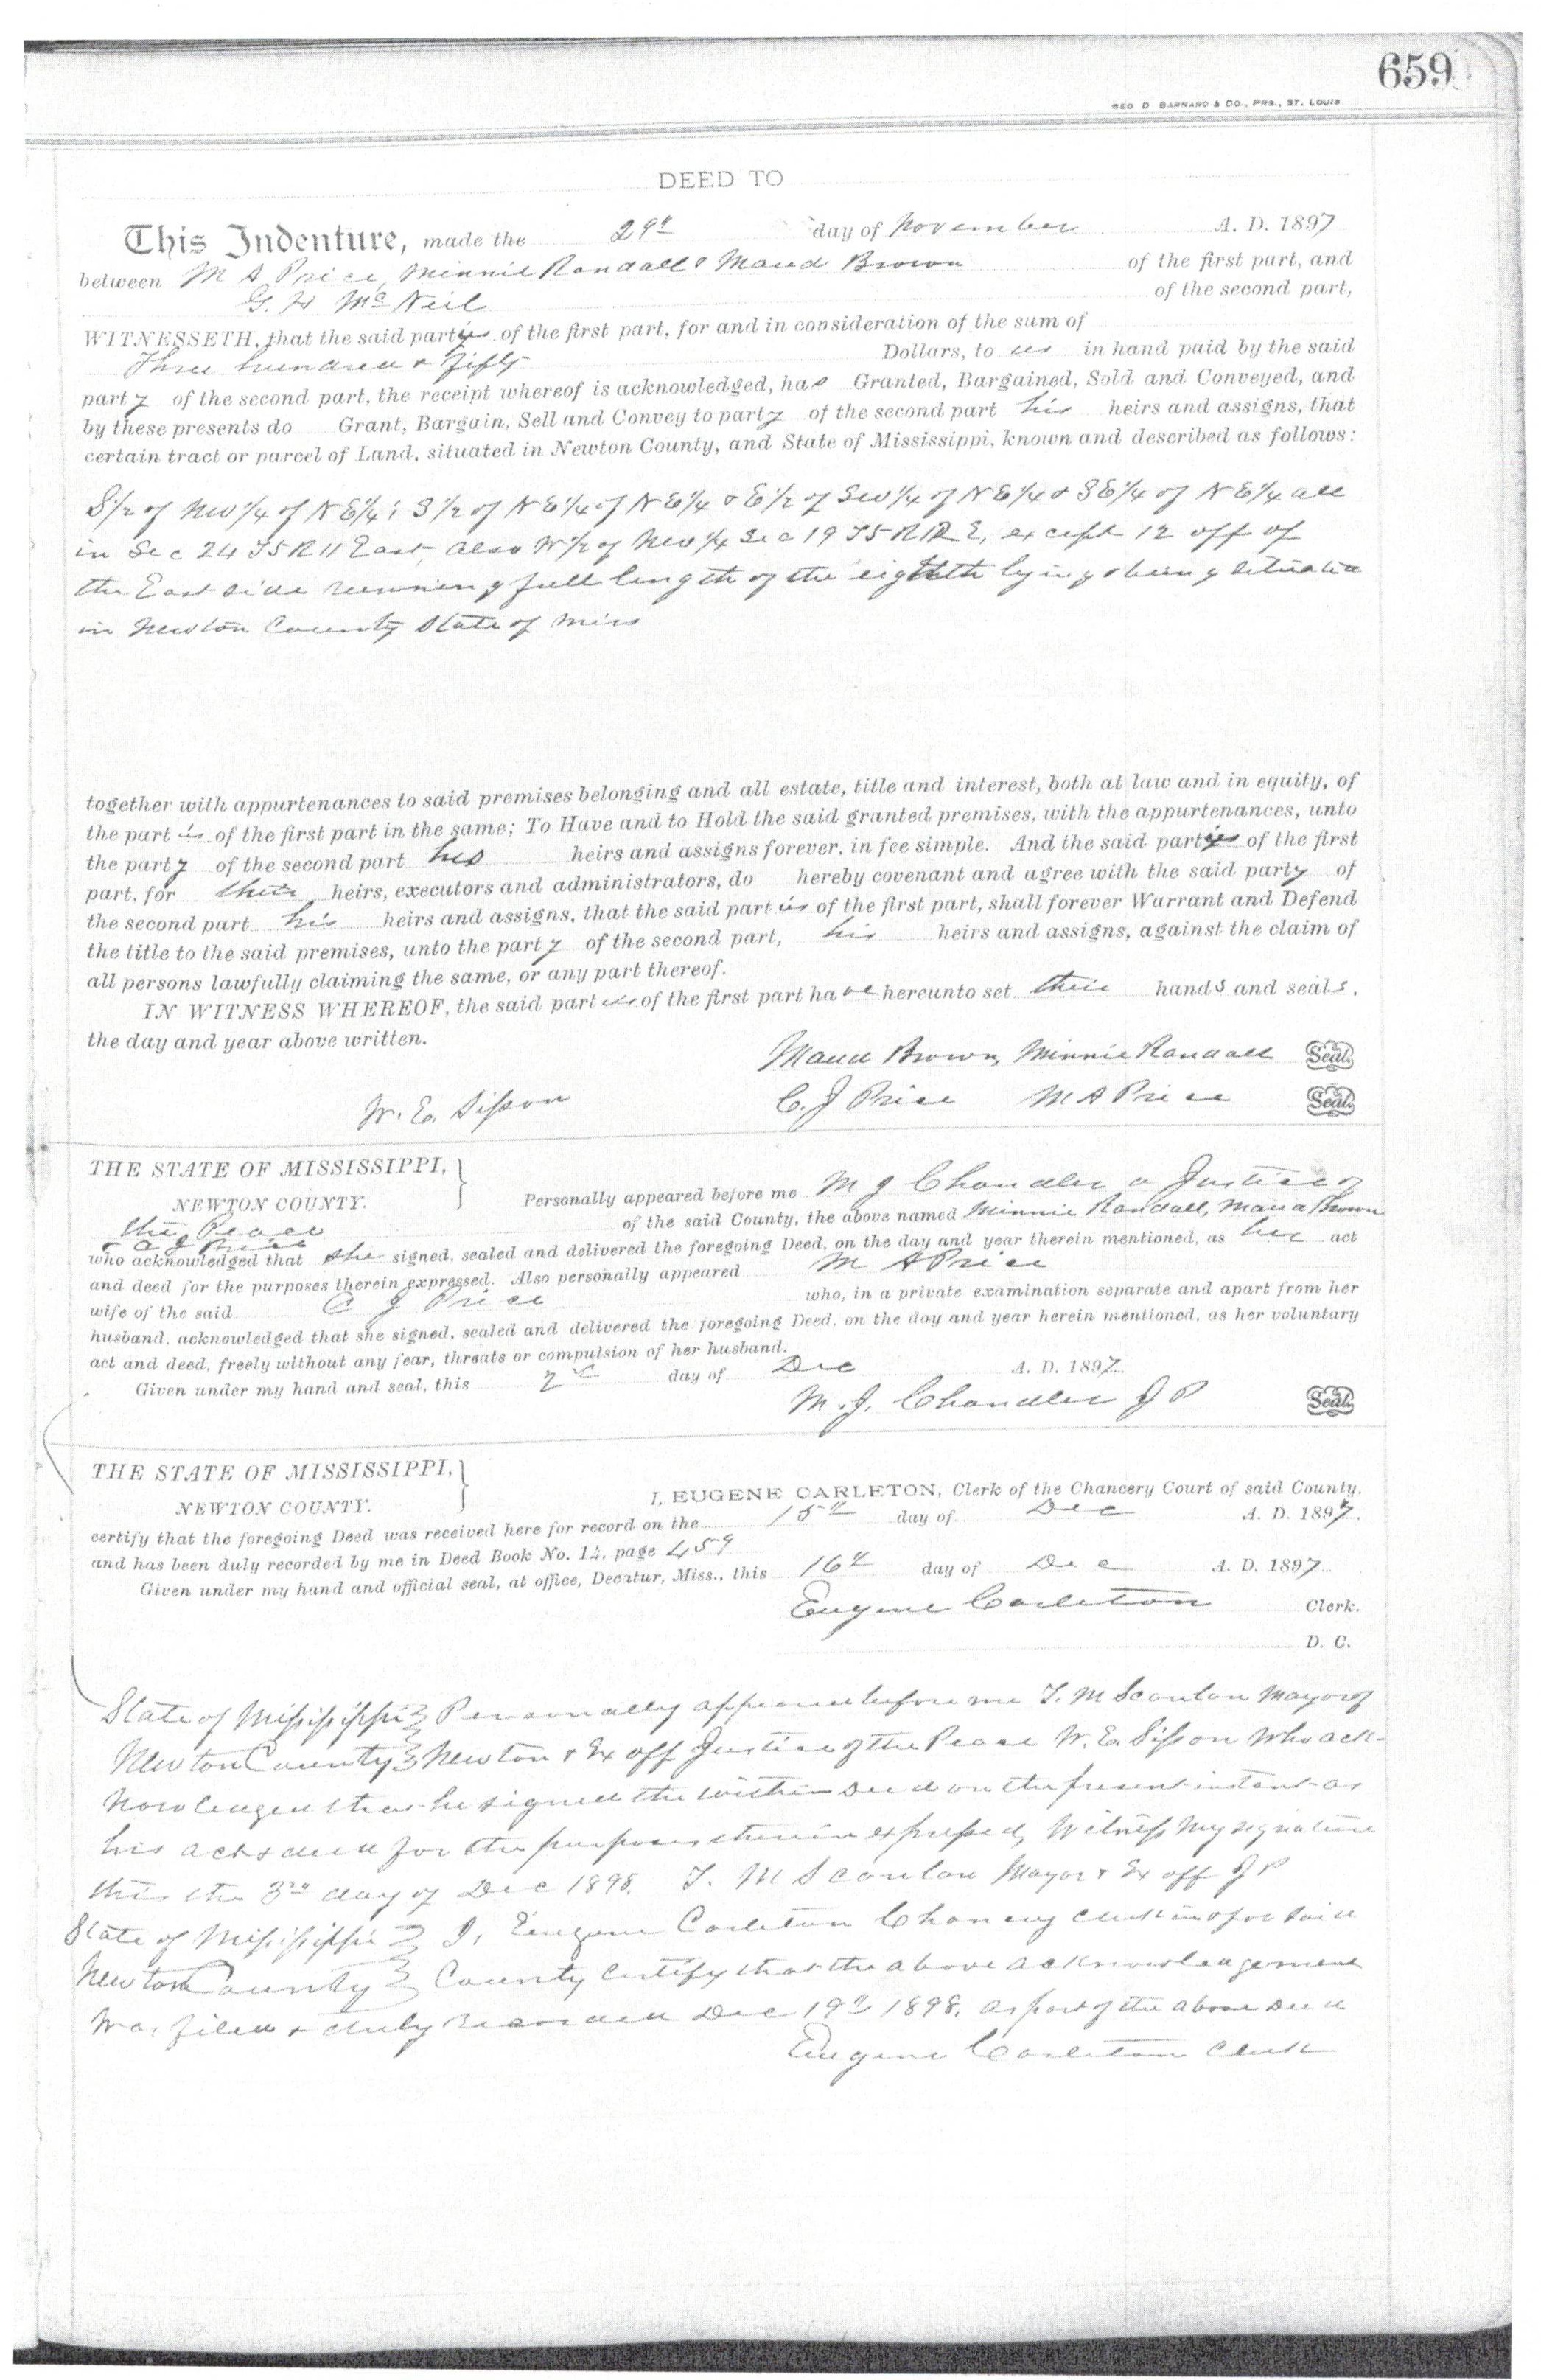 659
GEO D BARNARD & CO., PRS., ST. LOUIS
DEED TO
This Indenture, made the 29th day of November A. D. 1897
between M A Price, Minnie Randall & Maud Brown of the first part, and
G. H McNeil of the second part,
WITNESSETH, that the said parties of the first part, for and in consideration of the sum of
Three hundred & fifty Dollars, to us in hand paid by the said
party of the second part, the receipt whereof is acknowledged, has Granted, Bargained, Sold and Conveyed, and
by these presents do Grant, Bargain, Sell and Convey to party of the second part his heirs and assigns, that
certain tract or parcel of Land, situated in Newton County, and State of Mississippi, known and described as follows:
S1/2 of NW1/4 of NE1/4; S1/2 of NE1/4 of NE1/4 & E1/2 of SW1/4 of NE1/4 & SE1/4 of NE1/4 all
in Sec 24 T5 R11 East, also W1/2 of NW1/4 Sec 19 T5 R12 E, except 12 off of
the East side running full length of the eighth lying & being situated
in Newton County State of Miss
together with appurtenances to said premises belonging and all estate, title and interest, both at law and in equity, of
the part is of the first part in the same; To Have and to Hold the said granted premises, with the appurtenances, unto
the party of the second part his heirs and assigns forever, in fee simple. And the said parties of the first
part, for their heirs, executors and administrators, do hereby covenant and agree with the said party of
the second part his heirs and assigns, that the said parties of the first part, shall forever Warrant and Defend
the title to the said premises, unto the party of the second part, his heirs and assigns, against the claim of
all persons lawfully claiming the same, or any part thereof.
IN WITNESS WHEREOF, the said parties of the first part have hereunto set their hands and seals,
the day and year above written.
Maud Brown, Minnie Randall Seal.
W. E. Sisson C. J Price M A Price Seal.
THE STATE OF MISSISSIPPI,
NEWTON COUNTY.
Personally appeared before me M J Chandler a Justice of
the Peace of the said County, the above named Minnie Randall, Maud Brown
& C J Price
who acknowledged that she signed, sealed and delivered the foregoing Deed, on the day and year therein mentioned, as her act
and deed for the purposes therein expressed. Also personally appeared M A Price
wife of the said C J Price who, in a private examination separate and apart from her
husband, acknowledged that she signed, sealed and delivered the foregoing Deed, on the day and year herein mentioned, as her voluntary
act and deed, freely without any fear, threats or compulsion of her husband.
Given under my hand and seal, this day of Dec A. D. 1897.
M. J. Chandler J P Seal.
THE STATE OF MISSISSIPPI,
NEWTON COUNTY.
I, EUGENE CARLETON, Clerk of the Chancery Court of said County,
certify that the foregoing Deed was received here for record on the 15th day of Dec A. D. 1897.
and has been duly recorded by me in Deed Book No. 14, page 459
Given under my hand and official seal, at office, Decatur, Miss., this 16th day of Dec A. D. 1897
Eugene Carleton Clerk.
D. C.
State of Mississippi } Personally appeared before me T. M Scanlan Mayor of
Newton County } Newton & Ex off Justice of the Peace W. E. Sisson who ack-
nowledged that he signed the within Deed on the present instant as
his act & deed for the purposes therein expressed, Witness my signature
this the 3rd day of Dec 1898. T. M Scanlan Mayor & Ex off J P
State of Mississippi } I, Eugene Carleton Chancy Clerk in & for said
Newton County } County certify that the above acknowledgement
was filed & duly recorded Dec 19th 1898. as part of the above Deed
Eugene Carleton Clerk